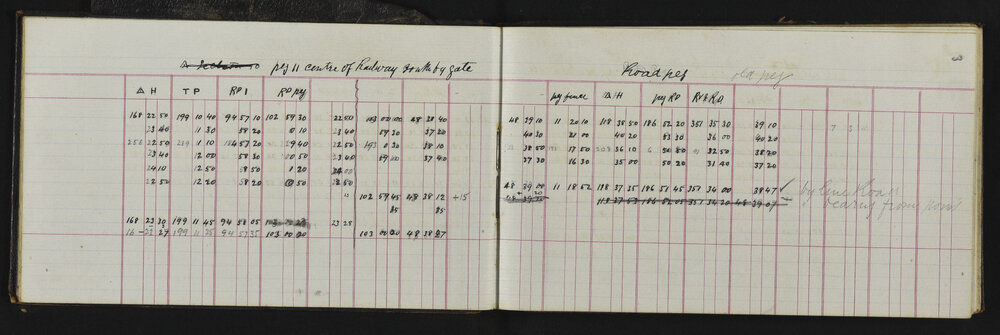 peg 11 centre of Railway South by gate
Δ H TP RP1 RD peg
168 22 50 199 10 40 94 57 10 102 59 30 22 50 103 00 00 48 38 40
23 40 11 30 58 20 0 10 23 40 59 30 37 20
256 22 50 11 10 57 20 29 40 22 50 193 0 30 38 10
23 40 12 00 58 30 10 50 23 40 59 00 37 40
24 10 12 50 58 50 1 20 24 00
22 50 12 20 58 20 50 22 50
102 59 45 48 38 12 +15
85 85
168 23 30 199 11 45 94 58 05 23 25
23 27 199 11 25 94 57 35 103 00 00 103 00 00 48 38 27
Road peg old peg
peg fence Δ H peg RD RP & RD
48 39 10 11 20 10 118 38 50 186 52 20 351 35 30 39 10
40 30 21 00 40 20 53 30 36 00 40 20
38 50 17 50 208 36 10 50 50 32 50 38 20
37 30 16 30 35 00 50 20 31 40 37 20
48 39 00 11 18 52 118 37 35 186 51 45 351 34 00 38 47 ✓
118 37 53 186 52 05 351 34 20 48 39 07
by line Road
bearing from